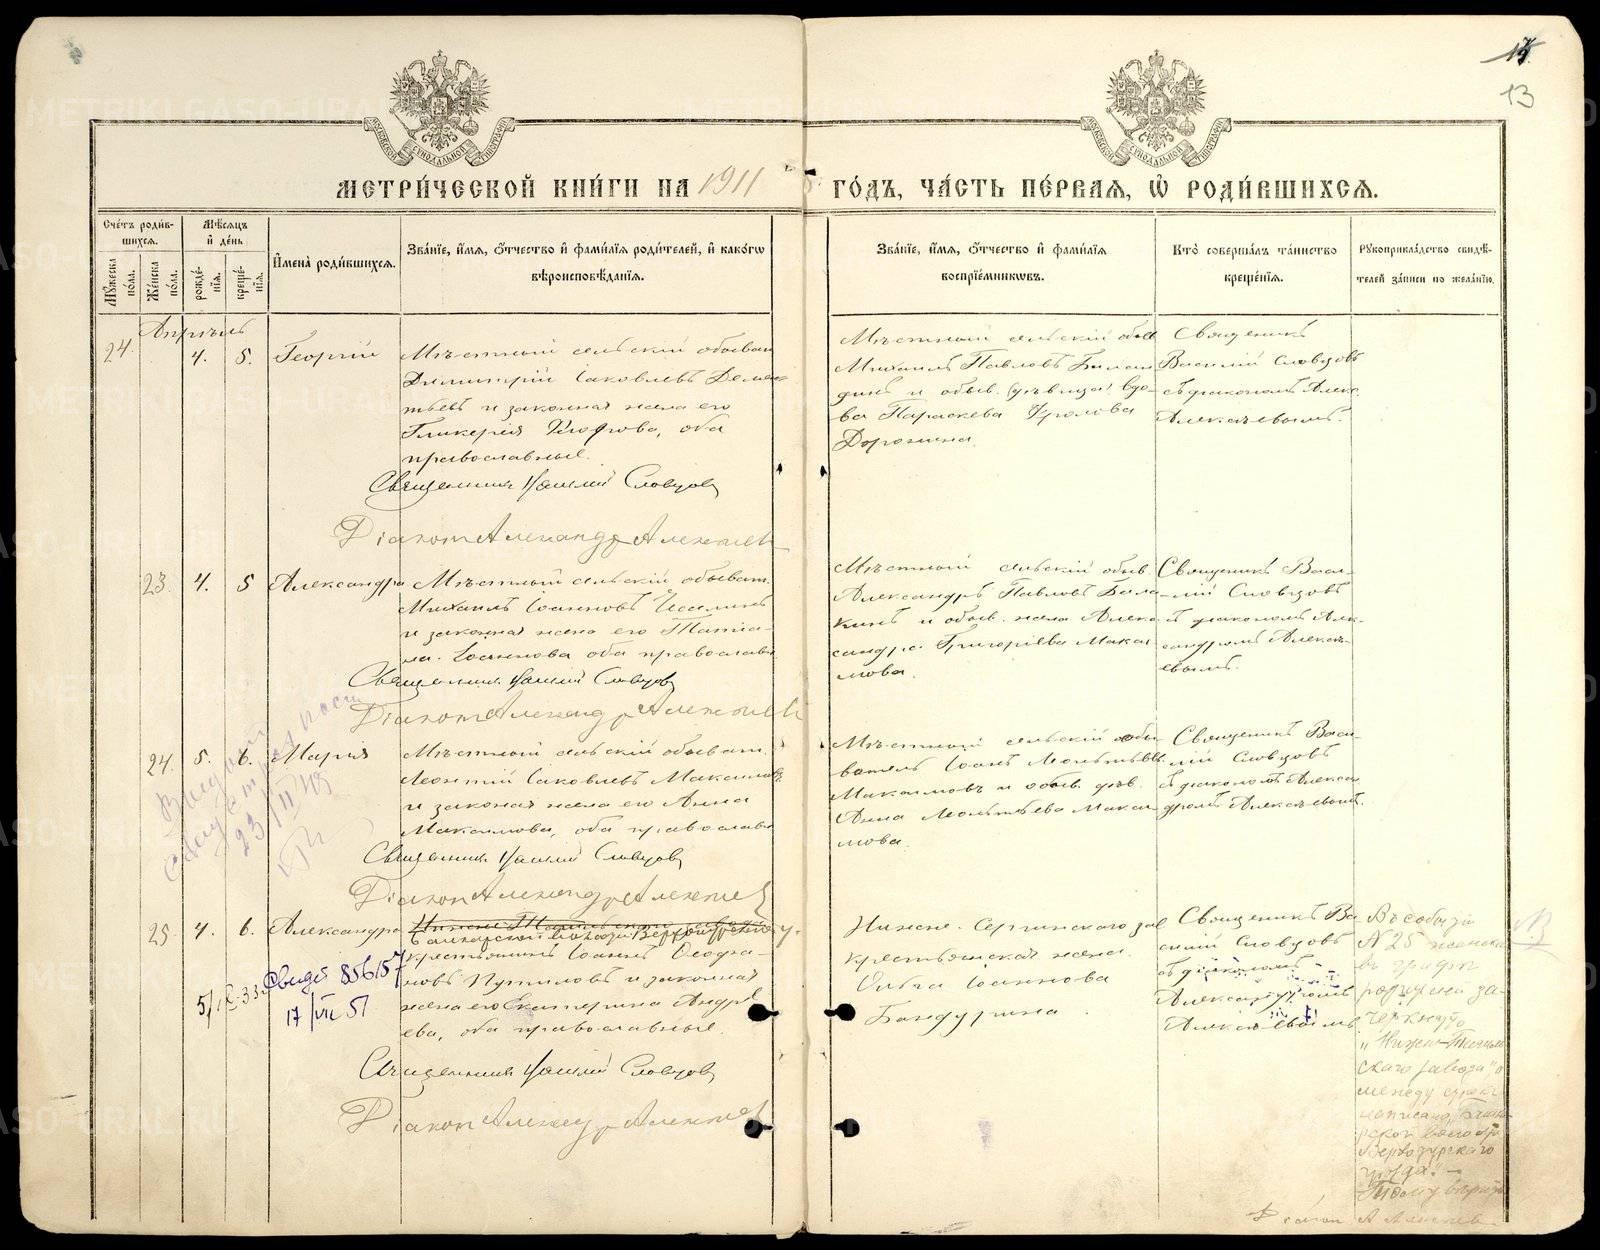 13
МЕТРИ́ЧЕСКОЙ КНИ́ГИ НА 1911 ГО́ДЪ, ЧА́СТЬ ПЕ́РВАЯ, Ѡ҆ РОДИ́ВШИХСЯ.
Сче́тъ роди́в-
шихся.
Мѣ́сяцъ
и҆ де́нь
Мꙋ́жеска по́ла.
Же́нска по́ла.
рожде́-
нїя.
креще́-
нїя.
И҆мена̀ роди́вшихся.
Зва́нїе, и҆́мя, ѻ҆́тчество и҆ фами́лїя роди́телей, и҆ како́гѡ
вѣроисповѣ́данїя.
Зва́нїе, и҆́мя, ѻ҆́тчество и҆ фами́лїя
воспрїе́мникѡвъ.
Кто̀ соверша́лъ та́инство
креще́нїя.
Рꙋкоприкла́дство свидѣ́-
телей за́писи по жела́нїю.
Апрѣль
24. 4. 5. Георгій
Мѣстный сельскій обыват
Димитрій Іаковлевъ Демен-
тьевъ и законная жена его
Гликерія, оба
православные.
Священникъ Василій Словцовъ
Діаконъ Александръ Алексѣевъ
Мѣстный сельскій обыв
Михаилъ Павловъ Балан
динъ и обыв. (дѣвица) вдо-
ва Параскева Фролова
Доронина.
Священникъ
Василій Словцовъ
съ діакономъ Алекс.
Алексѣевымъ.
23. 4. 5 Александра
Мѣстный сельскій обыват.
Михаилъ Іоанновъ
и законная жена его Татіа-
на Іоаннова оба православн
Священникъ Василій Словцовъ
Діаконъ Александръ Алексѣевъ
Мѣстный сельскій обыв.
Александръ Павловъ Бала
кинъ и обыв. жена Алекс
андра Григоріева Макси
мова.
Священникъ Васи-
лій Словцовъ
съ діакономъ Алек-
сандромъ Алексѣ-
евымъ.
24. 5. 6. Марія
Мѣстный сельскій обыват.
Леонтій Іаковлевъ Максимовъ
и законная жена его Анна
Максимова, оба православн
Священникъ Василій Словцовъ
Діаконъ Александръ Алексѣевъ
Мѣстный сельскій обы
ватель Іоаннъ Леонтьевъ
Максимовъ и обыв. дѣв.
Анна Леонтьева Макси
мова.
Священникъ Васи-
лій Словцовъ
съ діакономъ Алекса
дромъ Алексѣевымъ.
Выдано
23/II 43
25. 4. 6. Александра
крестьянинъ Іоаннъ Ѳеофа-
новъ Путиловъ и законная
жена его Екатерина Андре
ева, оба православные.
Священникъ Василій Словцовъ
Діаконъ Александръ Алексѣевъ
Свидет 856157
17/VII 51
Нижне-Сергинскаго зав
крестьянская жена
Ольга Іоаннова
Бандурина.
Священникъ Ва
силій Словцовъ
съ діакономъ
Александромъ
Алексѣевымъ.
Въ событіи
№ 25 женска
въ графѣ
родителей за-
черкнуто
„Нижне-Тагиль
скаго завода“, а
между строкъ
написано
Верхотурскаго
уѣзда. —
Діаконъ А Алексѣевъ